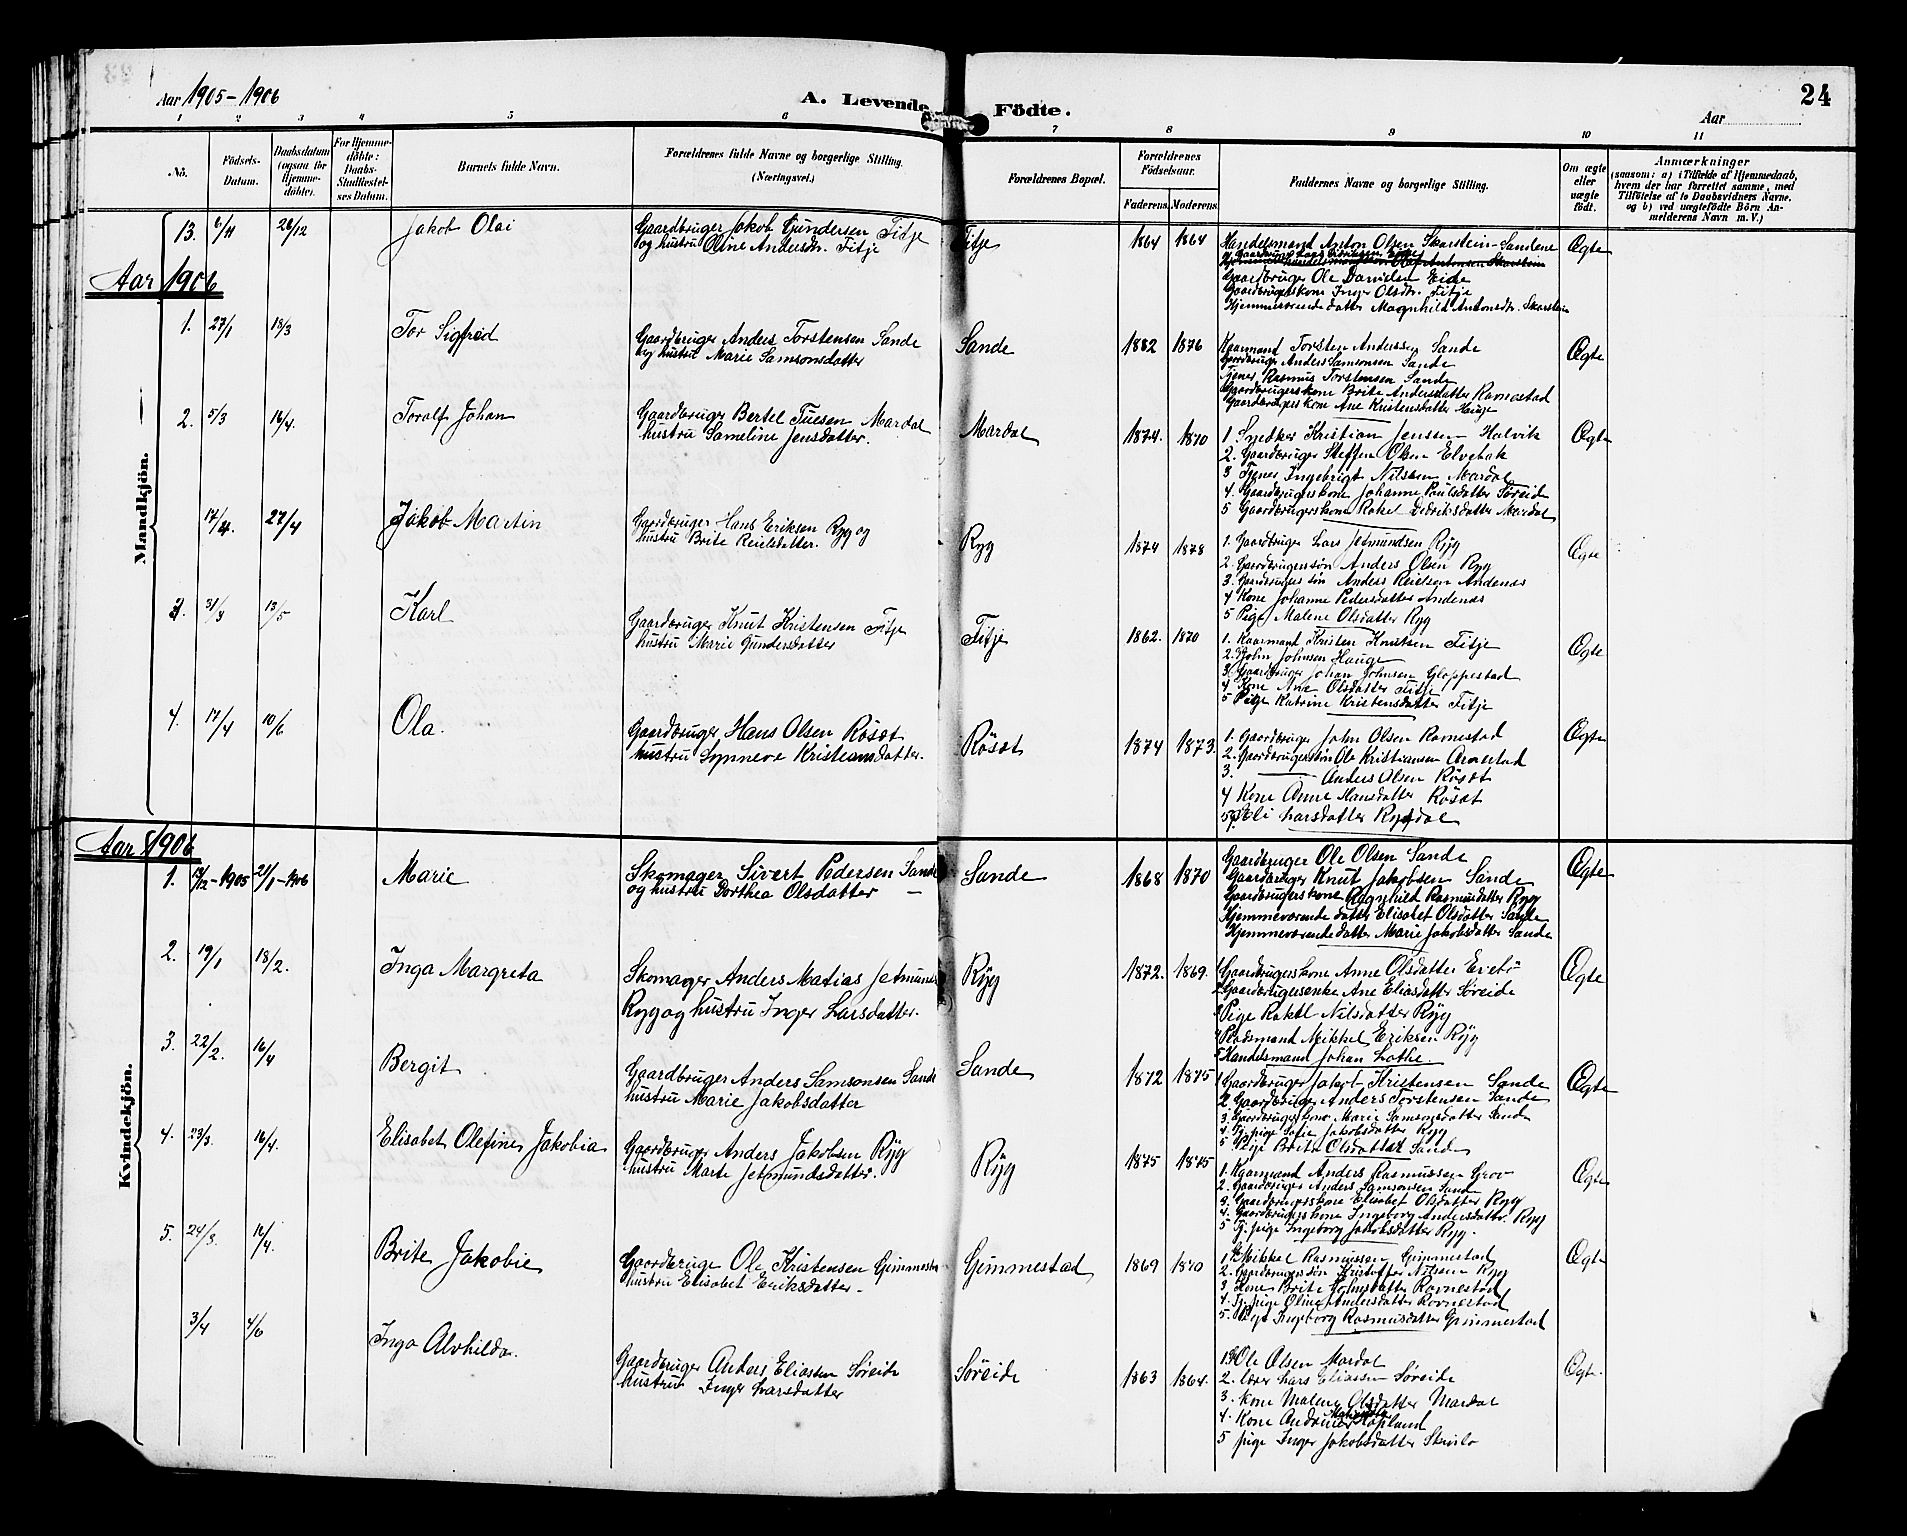 Aar 1905-1906
A. Levende Födte.
24
Aar
1 2 3 4 5 6 7 8 9 10 11
No.
Födsels-Datum.
Daabsdatum (ogsaa for Hjemmedöbte).
For Hjemmedöbte: Daabs-Stadfæstelses Datum.
Barnets fulde Navn.
Forældrenes fulde Navne og borgerlige Stilling. (Næringsvei.)
Forældrenes Bopæl.
Forældrenes Födselsaar.
Faderens. Moderens.
Faddernes Navne og borgerlige Stilling.
Om ægte eller uægte födt.
Anmærkninger
(saasom: a) i Tilfælde af Hjemmedaab, hvem der har forrettet samme, med Tilföielse af to Daabsvidners Navne, og b) ved uægtefödte Börn Anmelderens Navn m. V.)
Mandkjön.
13. 6/11 26/12 Jakob Olai
Gaardbruger Jakob Gundersen Fitje
og hustru Oline Andersdr. Fitje
Fitje 1864 1864
Handelsmand Anton Olsen Skarstein-Sandene
Gaardbruger Ole Danielsen Eide
Gaardbrugerskone Inger Olsdr. Fitje
Hjemmeværende datter Magnhild Antonsdr. Skarstein
Ægte
Aar 1906
1. 27/1 18/3 Tor Sigfred
Gaardbruger Anders Torstensen Sande
og hustru Marie Samsonsdatter
Sande 1882 1876
Kaarmand Torsten Anderssen Sande
Gaardbruger Anders Samsonsen Sande
Tjener Rasmus Torstensen Sande
Gaardbrugerskone Brite Andersdatter Ramestad
Gaardbrugerskone Ane Kristensdatter Hauge
Ægte
2. 5/3 16/4. Toralf Johan
Gaardbruger Bertel Tuesen Mardal
hustru Sameline Jensdatter.
Mardal 1874. 1870
1. Snedker Kristian Jenssen Holvik
2. Gaardbruger Steffen Olsen Elvebak
3 Tjener Ingebrigt Nilssen Mardal
4. Gaardbrugerskone Johanne Paulsdatter Søreide
5 Gaardbrugerskone Rakel Didriksdatter Mardal
Ægte
17/4. 27/4 Jakob Martin
Gaardbruger Hans Eriksen Ryg og
hustru Brite Reielsdatter.
Ryg 1874 1878
1. Gaardbruger Lars Jetmundsen Ryg
2. Gaardbrugersøn Anders Olsen Ryg
3. Gaardbrugersøn Anders Reielsen Andenæs
4 Kone Johanne Pedersdatter Andenæs
5 Pige Malene Olsdatter Ryg
Ægte
3. 31/3 13/5 Karl
Gaardbruger Knut Kristensen Fitje
hustru Marie Gundersdatter
Fitje 1862. 1870
1. Kaarmand Kristen Knutsen Fitje
2. John Johnsen Hauge
3 Gaardbruger Johan Johnsen Gloppestad
4 Kone Ane Olsdatter Fitje
5 Pige Katrine Kristensdatter Fitje
Ægte
4. 17/4 10/6 Ola.
Gaardbruger Hans Olsen Rösæt
hustru Synneve Kristiansdatter.
Rösæt 1874 1873.
1. Gaardbruger John Olsen Ravnestad
2. Gaardbrugersøn Ole Kristiansen Arnestad
3. Anders Olsen Rösæt
4 Kone Anne Hansdatter Rösæt
5 Eli Larsdatter Rygdal
Ægte
Aar 1906
Kvindekjön.
1. 17/12-1905 21/1-1906 Marie
Skomager Sivert Pedersen Sande
og hustru Dorthea Olsdatter
Sande 1868 1870
Gaardbruger Ole Olsen Sande
Gaardbruger Knut Jakobsen Sande
Gaardbrugerskone Ragnhild Rasmusdatter Ryg
Hjemmeværende datter Elisabet Olsdatter Sande
Hjemmeværende datter Marie Jakobsdatter Sande
Ægte
2. 19/1 18/2. Inga Margreta
Skomager Anders Matias Jetmunds
Ryg og hustru Inger Larsdatter.
Ryg 1872. 1869.
1 Gaardbrugerskone Anne Olsdatter Evebö
2 Gaardbrugerenke Ane Eliasdatter Søreide
3 Pige Rakel Nilsdatter Ryg
4 Pladsmand Mikkel Eriksen Ryg
5 Handelsmand Johan Lothe.
Ægte
3. 22/2. 16/4 Bergit
Gaardbruger Anders Samsonsen Sande
hustru Marie Jakobsdatter
Sande 1872 1875
1 Gaardbruger Jakob Kristensen Sande
2 Gaardbruger Anders Torstensen Sande
3. Gaardbrugerkone Marie Samsonsdatter Sand
4. Tj. pige Sofie Jakobsdatter Ryg
5 Pige Brite Olsdatter Sand
Ægte
4. 23/3. 16/4. Elisabet Olefine Jakobia
Gaardbruger Anders Jakobsen Ryg
hustru Marte Jetmundsdatter.
Ryg 1875 1875
1. Kaarmand Anders Rasmussen Grov
2. Gaardbruger Anders Samsonsen Sand
3. Gaardbrugerskone Elisabet Olsdatter Ryg
4. Gaardbrugerskone Ingeborg Andersdatter Ryg
5 Tj. pige Ingeborg Jakobsdatter Ryg.
Ægte
5. 24/3. 16/4. Brite Jakobie
Gaardbruge Ole Kristensen Gimmesta
hustru Elisabet Eriksdatter.
Gimmestad 1869 1870
1. Mikkel Rasmussen Gimmestad
2. Gaardbrugersøn Kristoffer Nilsen Ryg
3. Kone Brite Johnsdatter Ravnestad
4. Tj. pige Oline Andersdatter Ravnestad
5. Pige Ingeborg Rasmusdatter Gimmestad
Ægte
3/4 4/6 Inga Alvhilda.
Gaardbruger Anders Eliassen Søreide
hustru Inger Larsdatter
Søreide 1863 1864.
1. Ole Olsen Mardal
2. Lærer Lars Eliassen Søreide
3. Kone Malene Olsdatter Mardal
4. Kone Andrine Hopland
5 pige Inger Jakobsdatter
Ægte.